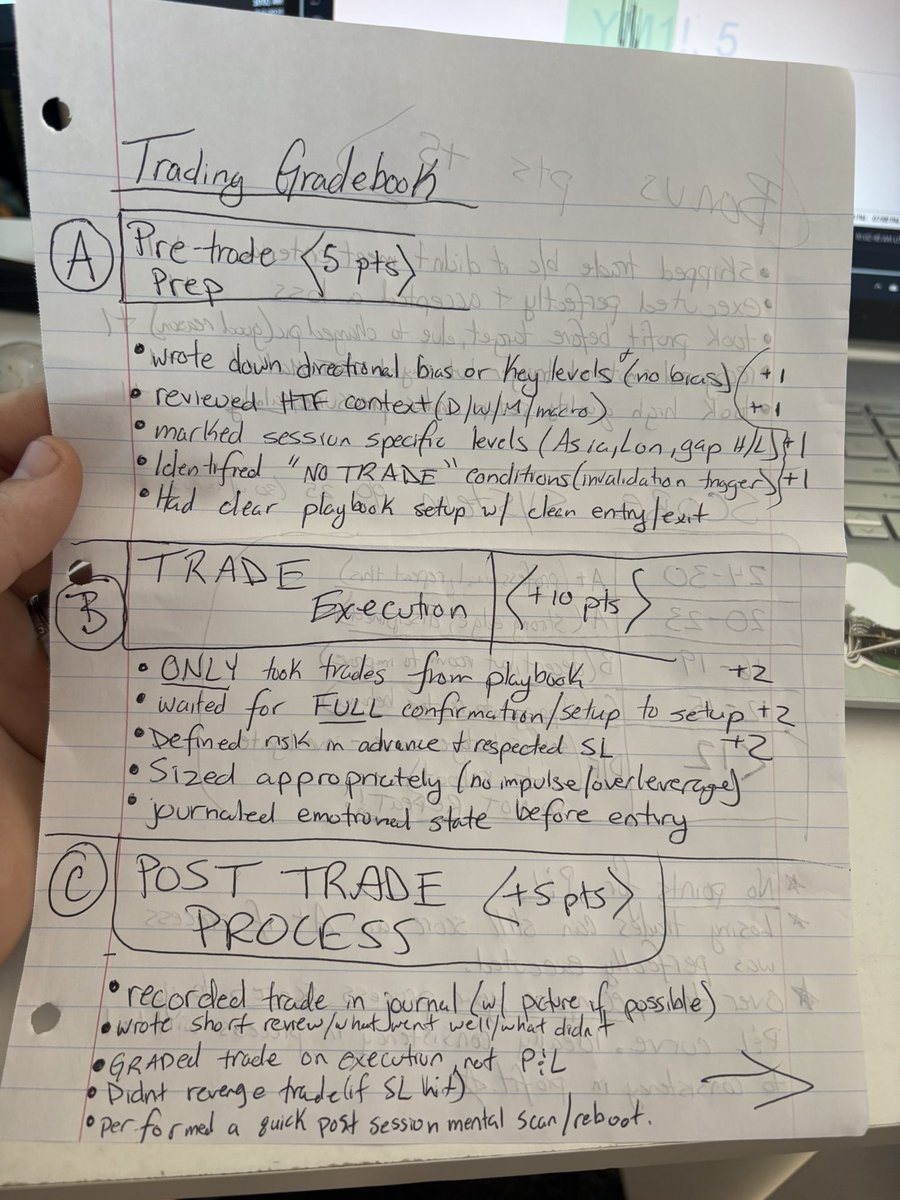 YM1!, 5
Trading Gradebook
A Pre-trade Prep <5 pts>
• wrote down directional bias or Key levels + (no bias) +1
• reviewed HTF context (D/W/M/macro) +1
• marked session specific levels (Asia, Lon, gap H/L) +1
• Identified "NO TRADE" conditions (invalidation trigger) +1
• Had clear playbook setup w/ clean entry/exit
B TRADE Execution <+10 pts>
• ONLY took trades from playbook +2
• waited for FULL confirmation/setup to setup +2
• Defined risk in advance + respected SL +2
• Sized appropriately (no impulse/overleverage)
• journaled emotional state before entry
C POST TRADE PROCESS <+5 pts>
• recorded trade in journal (w/ picture if possible)
• wrote short review/what went well/what didn't
• GRADED trade on execution, not P&L
• Didnt revenge trade (if SL hit)
• performed a quick post session mental scan/reboot.